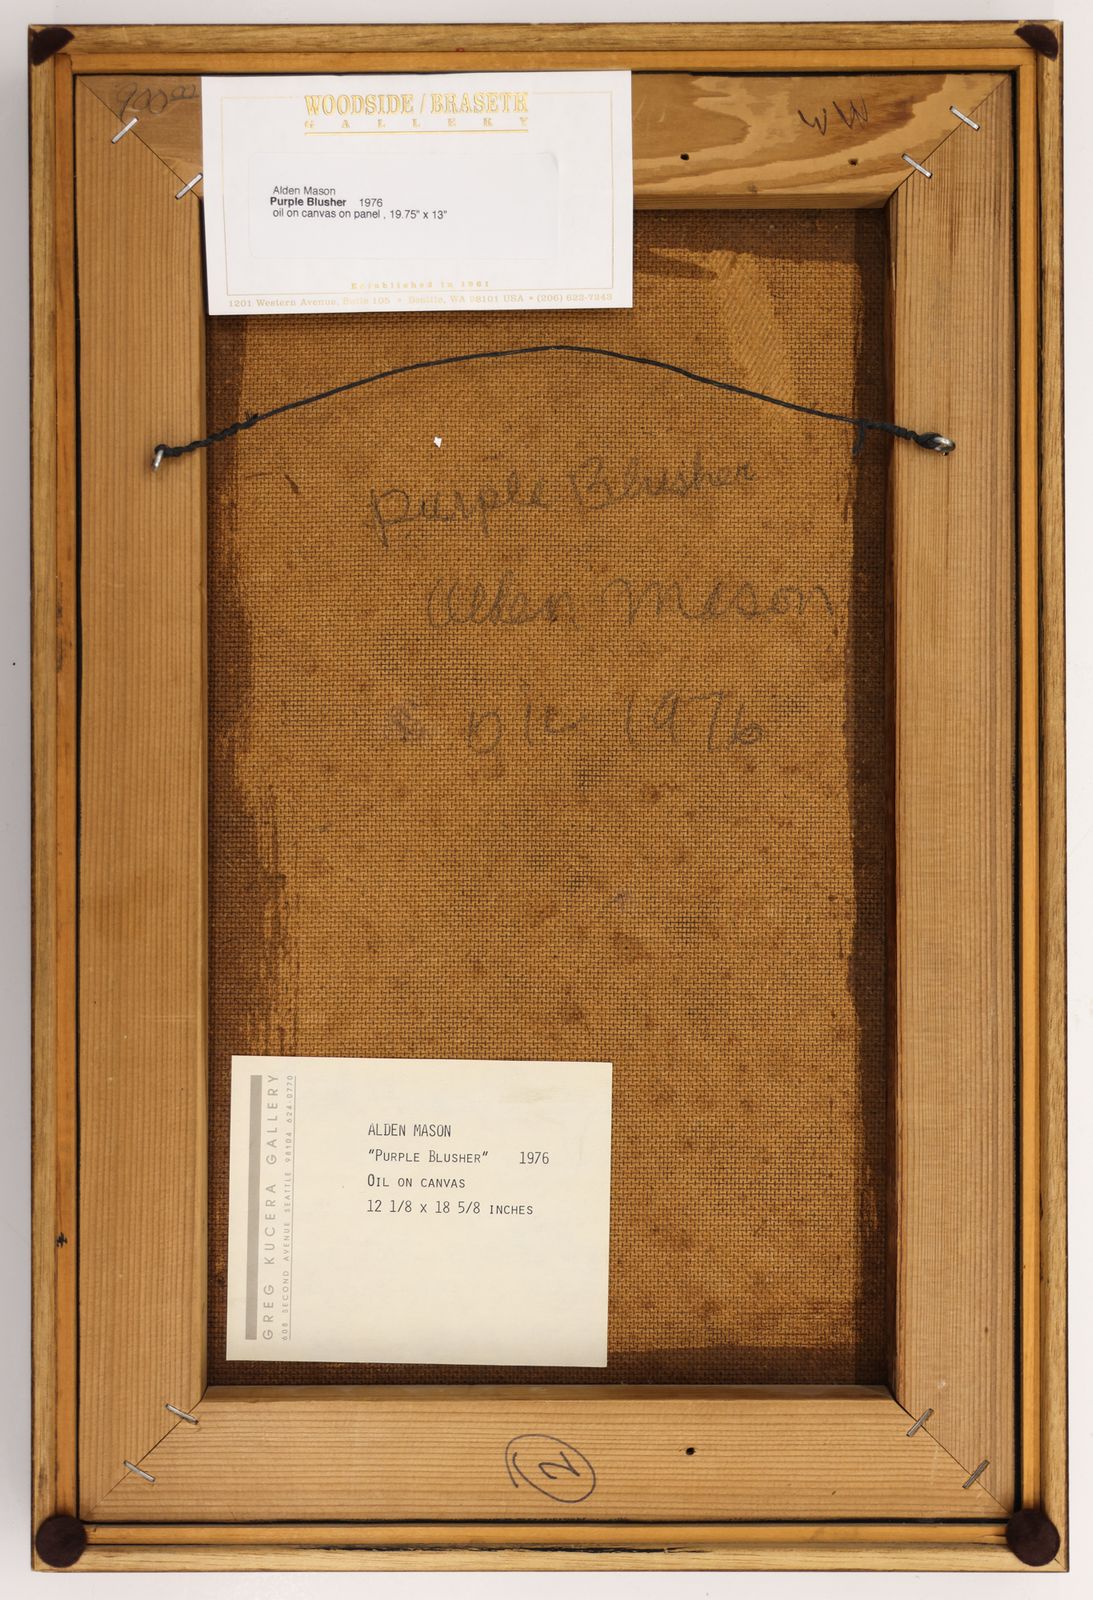 WW
WOODSIDE / BRASETH
GALLERY
Alden Mason
Purple Blusher 1976
oil on canvas on panel , 19.75" x 13"
Established in 1961
1201 Western Avenue, Suite 105 • Seattle, WA 98101 USA • (206) 622-7243
Purple Blusher
Alden Mason
1976
GREG KUCERA GALLERY
608 SECOND AVENUE SEATTLE 98104 624-0770
ALDEN MASON
"PURPLE BLUSHER" 1976
OIL ON CANVAS
12 1/8 x 18 5/8 INCHES
2